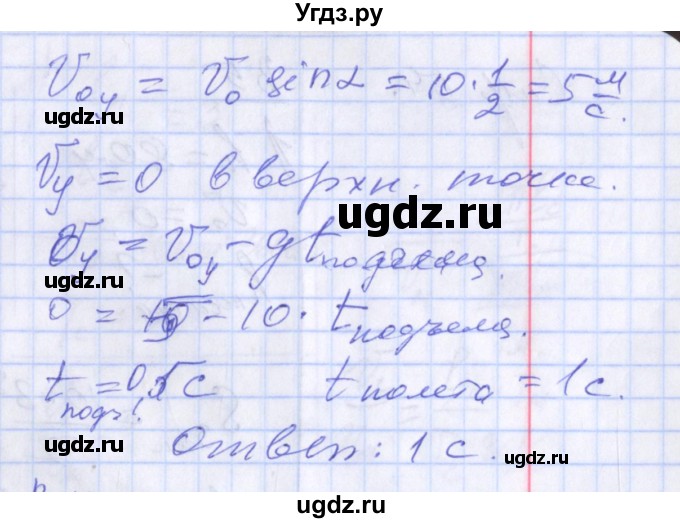 Угдз.ру
V₀y = V₀ sin α = 10 · 1/2 = 5 м/с.
ugdz.ru
Vy = 0 в верхн. точке.
ugdz.ru
Vy = V₀y − gt подъема.
ugdz.ru
0 = 5 − 10 · t подъема.
t подъ. = 0,5 с t полета = 1 с.
ugdz.ru
Ответ: 1 с.
ugdz.ru
ugdz.ru